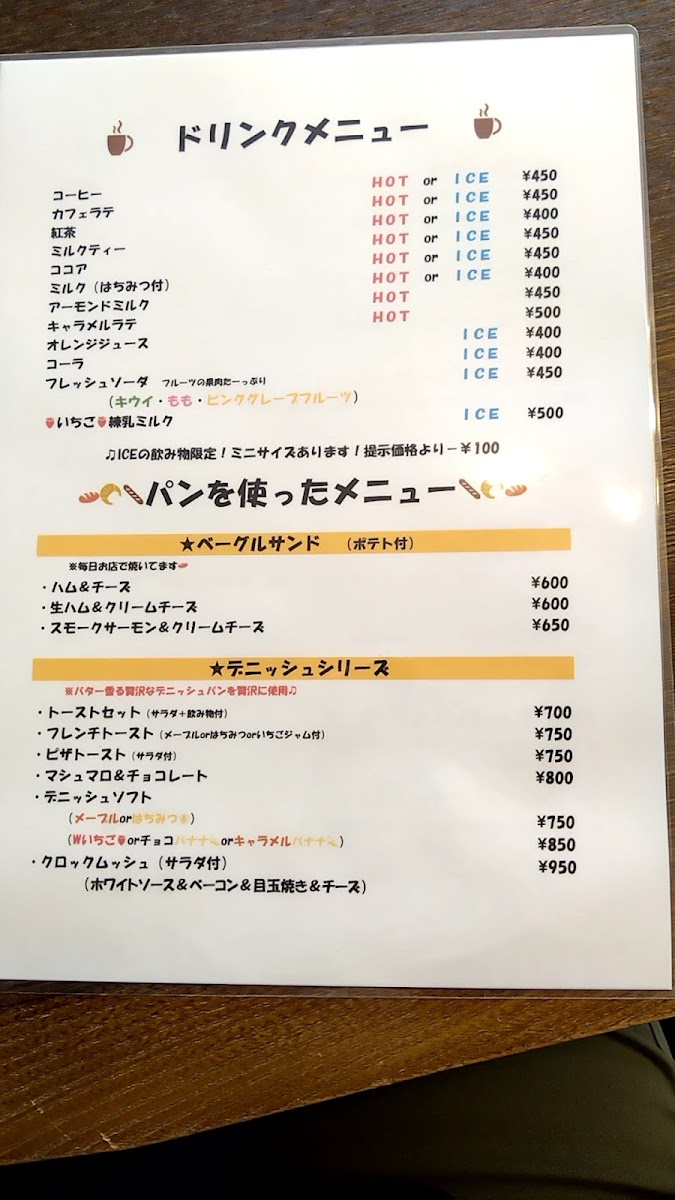 ドリンクメニュー
コーヒー HOT or ICE ¥450
カフェラテ HOT or ICE ¥450
紅茶 HOT or ICE ¥400
ミルクティー HOT or ICE ¥450
ココア HOT or ICE ¥450
ミルク（はちみつ付） HOT or ICE ¥400
アーモンドミルク HOT ¥450
キャラメルラテ HOT ¥500
オレンジジュース ICE ¥400
コーラ ICE ¥400
フレッシュソーダ フルーツの果肉たーっぷり ICE ¥450
（キウイ・もも・ピンクグレープフルーツ）
🍓いちご🍓練乳ミルク ICE ¥500
♫ICEの飲み物限定！ミニサイズあります！提示価格より－¥100
パンを使ったメニュー
★ベーグルサンド （ポテト付）
※毎日お店で焼いてます
・ハム＆チーズ ¥600
・生ハム＆クリームチーズ ¥600
・スモークサーモン＆クリームチーズ ¥650
★デニッシュシリーズ
※バター香る贅沢なデニッシュパンを贅沢に使用♫
・トーストセット（サラダ＋飲み物付） ¥700
・フレンチトースト（メープルorはちみつorいちごジャム付） ¥750
・ピザトースト（サラダ付） ¥750
・マシュマロ＆チョコレート ¥800
・デニッシュソフト
（メープルorはちみつ） ¥750
（Wいちご🍓orチョコバナナorキャラメルバナナ） ¥850
・クロックムッシュ（サラダ付） ¥950
（ホワイトソース＆ベーコン＆目玉焼き＆チーズ）